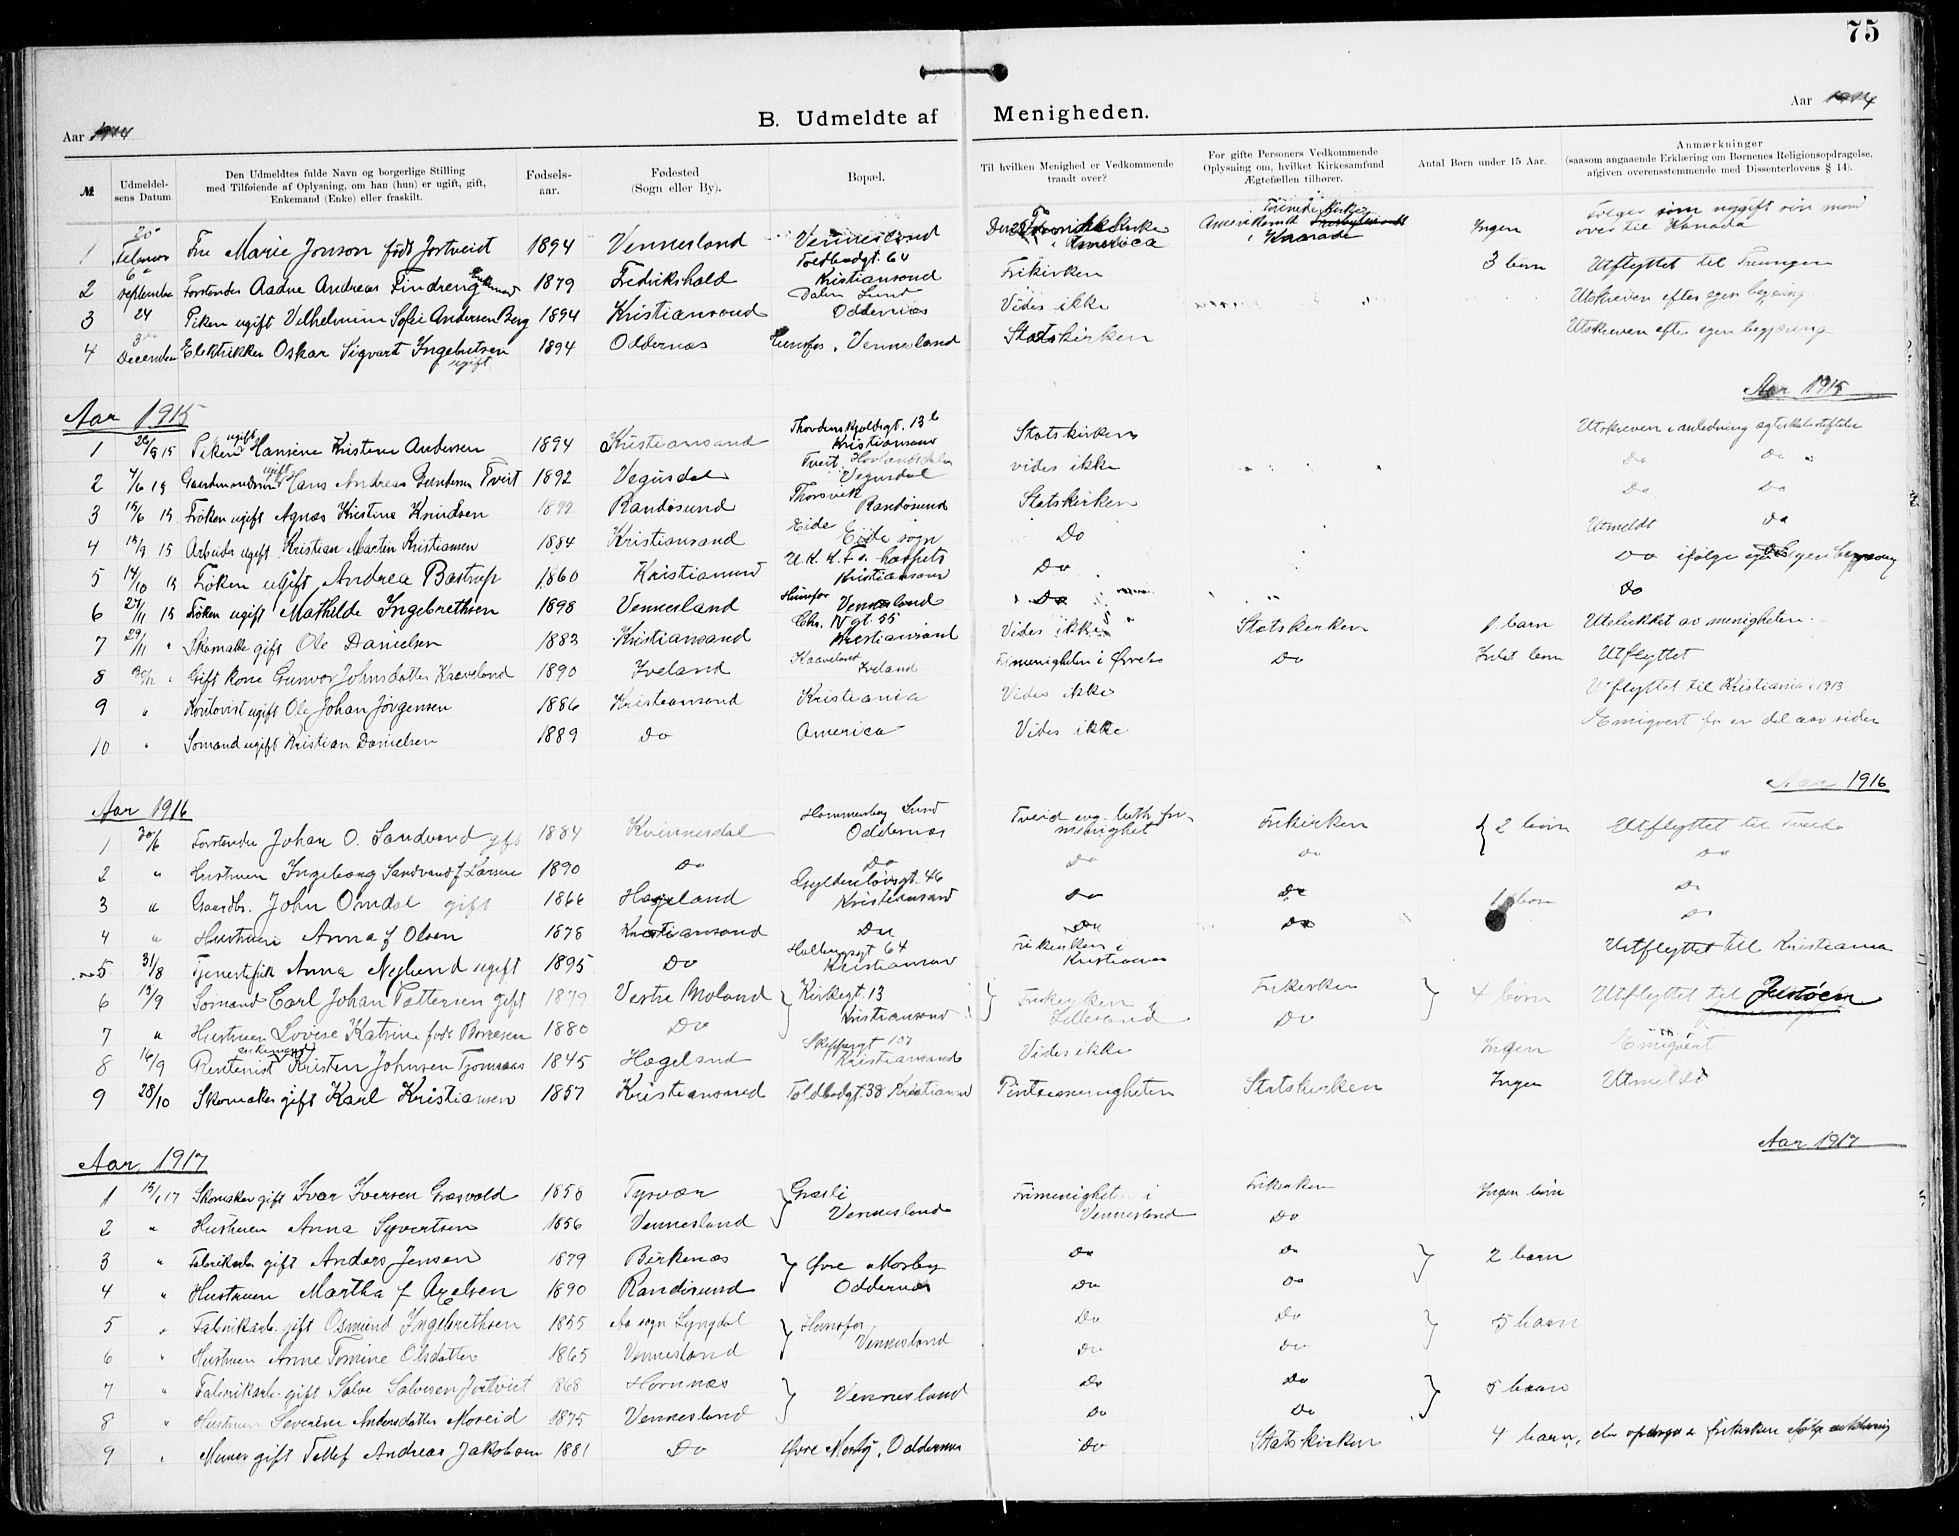 75
Aar 1914
B. Udmeldte af Menigheden.
Aar 1914
№ | Udmeldelsens Datum | Den Udmeldtes fulde Navn og borgerlige Stilling med Tilføiende af Oplysning, om han (hun) er ugift, gift, Enkemand (Enke) eller fraskilt. | Fødselsaar. | Fødested (Sogn eller By). | Bopæl. | Til hvilken Menighed er Vedkommende traadt over? | For gifte Personers Vedkommende Oplysning om, hvilket Kirkesamfund Ægtefællen tilhører. | Antal Børn under 15 Aar. | Anmærkninger (saasom angaaende Erklæring om Børnenes Religionsopdragelse, afgiven overensstemmende med Dissenterlovens § 14).
1 | Fru Marie Jonson født Jortveidt | 1894 | Vennesland | Vennesland | America | Kanada | Ingen | som nygift sin mand over til Kanada
2 | 6 September | Forstander Aadne Andreas Findreng Enkemand | 1879 | Fredrikshald | Toldbodgt. 64 Kristiansand | Frikirken | 3 børn | Utflyttet til
3 | 24 | Piken ugift Vilhelmine Sofie Andersen Berg | 1894 | Kristiansand | Lund Oddernæs | Vides ikke | Utskreven efter egen begjæring
4 | December | Elektriker Oskar Sigvart Ingebretsen ugift | 1894 | Oddernæs | Hunsfos, Vennesland | Statskirken | Utskreven efter egen begjæring
Aar 1915
Aar 1915
1 | 15 | Piken ugift Hansine Kristine Andersen | 1894 | Kristiansand | Thordenskjoldsgt. 13 b Kristiansand | Statskirken | Utskreven i anledning
2 | 4/6 15 | ugift Hans Andreas Tveit | 1892 | Vegusdal | Tveit Vegusdal | vides ikke | Do Do
3 | 15/6 15 | Frøken ugift Agnes Kristine Knudsen | 1892 | Randøsund | Thorsvik Randøsund | Statskirken | Do Do
4 | 15 | Arbeider ugift Kristian Martin Kristiansen | 1884 | Kristiansand | Eide Eide sogn | Do | Utmeldt Do
5 | 14/10 15 | Frøken ugift Andrea Bastrup | 1860 | Kristiansand | Kristiansand | Do | Do ifølge egen begjæring
6 | 27/11 15 | Frøken ugift Mathilde Ingebrethsen | 1898 | Vennesland | Hunsfos Vennesland | Do | Do
7 | 29/11 " | Skomaker gift Ole Danielsen | 1883 | Kristiansand | Chr. IV gt. 55 Kristiansand | Vides ikke | Statskirken | 1 barn | Utelukket av menigheten
8 | Gift kone Gunvor Johnsdatter Kaaveland | 1890 | Iveland | Kaaveland Iveland | Frimenigheten i | Do | Intet barn | Utflyttet
9 | " | ugift Ole Johan Jørgensen | 1886 | Kristiansand | Kristiania | Vides ikke | Utflyttet til Kristiania i 1913
10 | " | Sømand ugift Kristian Danielsen | 1889 | Do | America | Vides ikke | Emigrert for en del aar siden
Aar 1916
Aar 1916
1 | 20/6 | Forstander Johan O. Sandvand gift | 1884 | Kvinnesdal | Lund Oddernæs | Tveid evg. luth. fri menighet | Frikirken | 2 børn | Utflyttet til Tveid
2 | " | Hustruen Ingeborg Sandvand f Larsen | 1890 | Do | Do | Do | Do | Do
3 | " | Gaardbr. John Omdal gift | 1866 | Hægeland | Gyldenløvsgt. 46 Kristiansand | Do | Do | barn | Do
4 | " | Hustruen Anna f Olsen | 1878 | Kristiansand | Do | Do | Do | Do
5 | 31/8 | Tjenestepik Anna Nylund ugift | 1895 | Do | Holbergsgt 64 Kristiansand | Frikirken i Kristiania | Utflyttet till Kristiania
6 | 13/9 | Sømand Carl Johan Pettersen gift | 1879 | Vestre Moland | Kirkegt. 13 Kristiansand | Frikirken i Lillesand | Frikirken | 4 børn | Utflyttet til Justøen
7 | " | Hustruen Lovise Katrine født Børresen | 1880 | Do | Do
8 | 16/9 | Rentenist enkemand Kristen Johnsen | 1845 | Hægeland | Skippergt 107 Kristiansand | Vides ikke | Ingen | Emigrert
9 | 28/10 | Skomaker gift Karl Kristiansen | 1857 | Kristiansand | Toldbodgt. 38 Kristiansand | Pintsemenigheten | Statskirken | Ingen | Utmeldt
Aar 1917
Aar 1917
1 | 15/1 17 | Skomaker gift Ivar Iversen Græsvold | 1858 | Tysvær | Græsli Vennesland | Frimenigheten i Vennesland | Frikirken | Ingen børn
2 | " | Hustruen Anna Syvertsen | 1856 | Vennesland | Do
3 | " | Fabrikarb. gift Anders Jensen | 1879 | Birkenæs | Øvre Mosby Oddernæs | Do | Do | 2 barn
4 | " | Hustruen Martha f Axelsen | 1890 | Randøsund | Do | Do
5 | " | Fabrikarb. gift Osmund Ingebrethsen | 1855 | Aa sogn Lyngdal | Hunsfos Vennesland | Do | Do | 5 barn
6 | " | Hustruen Anne Tomine Olsdatter | 1865 | Vennesland | Do | Do
7 | " | Fabrikarb. gift Salve Salvesen Jortveit | 1868 | Hornnæs | Vennesland | Do | Do | 5 barn
8 | " | Hustruen Severine Andersdatter Moseid | 1875 | Vennesland | Do | Do
9 | " | Murer gift Tellef Andreas Jakobsen | 1881 | Do | Øvre Mosby, Oddernæs | Do | Statskirken | 4 barn, der opdrages i frikirken ifølge erklæring